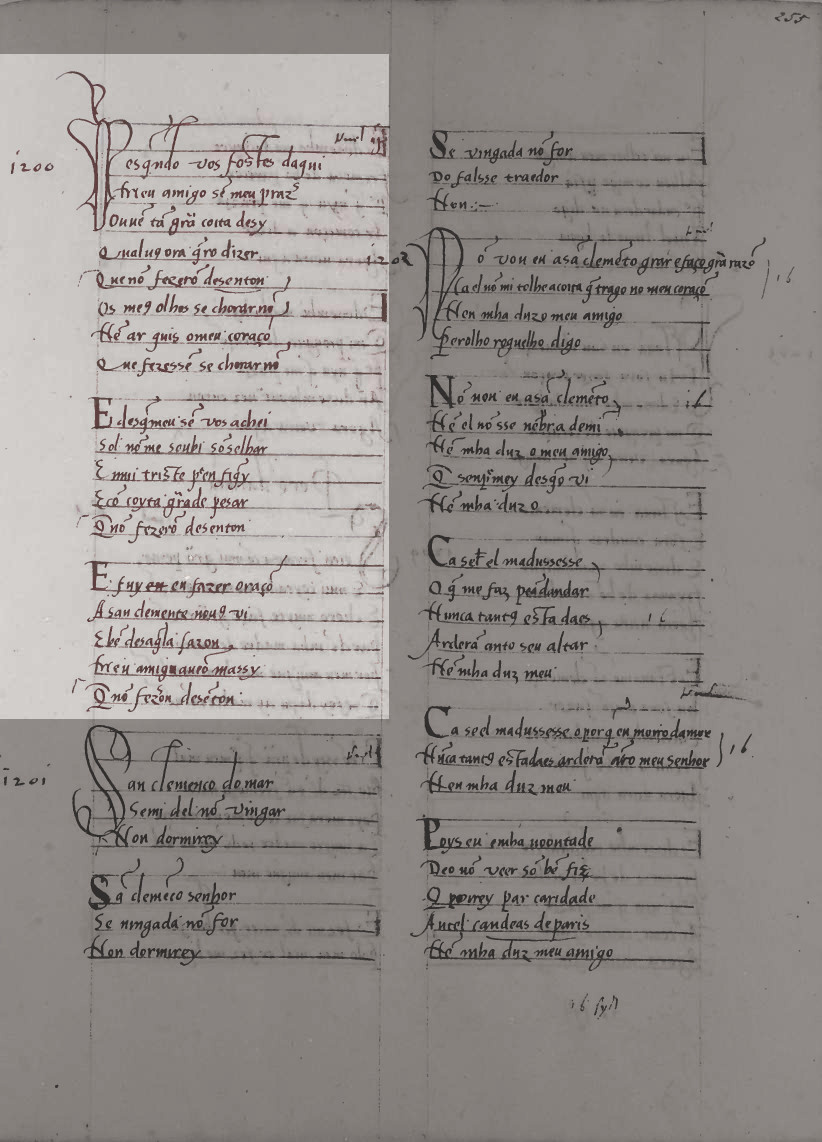 255
1200
Pesq̃ndo vos fostes daqui
Meu amigo sẽ meu praz̃
Ouuẽ tã grã coita desy
Qualug ora q̃ro dizer
Que nõ fezerõ desenton
Os me9 olhos se chorar nõ
Nẽ ar quis o meu coraçõ
Que fezessẽ se chorar nõ
E desq̃ meu sẽ vos achei
Sol nõ me soubi cõselhar
E mui triste
E cõ coyta grãde pesar
Q̃ nõ fezerõ desenton
E fuy en eu fazer oraçõ
A san clemente nou9 vi
E bẽ desaq̃la sazon
Meu amig aueo massy
Q̃ nõ fezõn desẽton
1201
San clemenco do mar
Semi del nõ vingar
Non dormirey
Sã clemẽco senhor
Se uingada nõ for
Non dormirey
Se vingada nõ for
Do falsse traedor
Non
1202
Nõ vou eu a sã clemẽto orar e faço grã razõ
Ca el nõ mi tolhe a coita q̃ trago no meu coraçõ
Nen mha duz o meu amigo
Pero lho rogu e lho digo
16
Nõ uou eu a sã clemẽto
Nẽ el nõ sse nẽbra de mi
Nẽ mha duz o meu amigo
Q̃ desq̃o vi
Nẽ mha duz o
16
Ca se el madussesse
O q̃ me faz peãdandar
Nunca tant9 estadaes
Arderã anto seu altar
Nẽ mha duz meu
16
Ca se el madussesse o porq̃ eu moiro damore
Nũca tant9 estadaes arderã ãto meu senhor
Nen mha duz meu
16
Poys eu e mha uoontade
Deo nõ veer sõ bẽ fiz
Q porrey par caridade
Antel candeas de paris
Nẽ mha duz meu amigo
16 syll